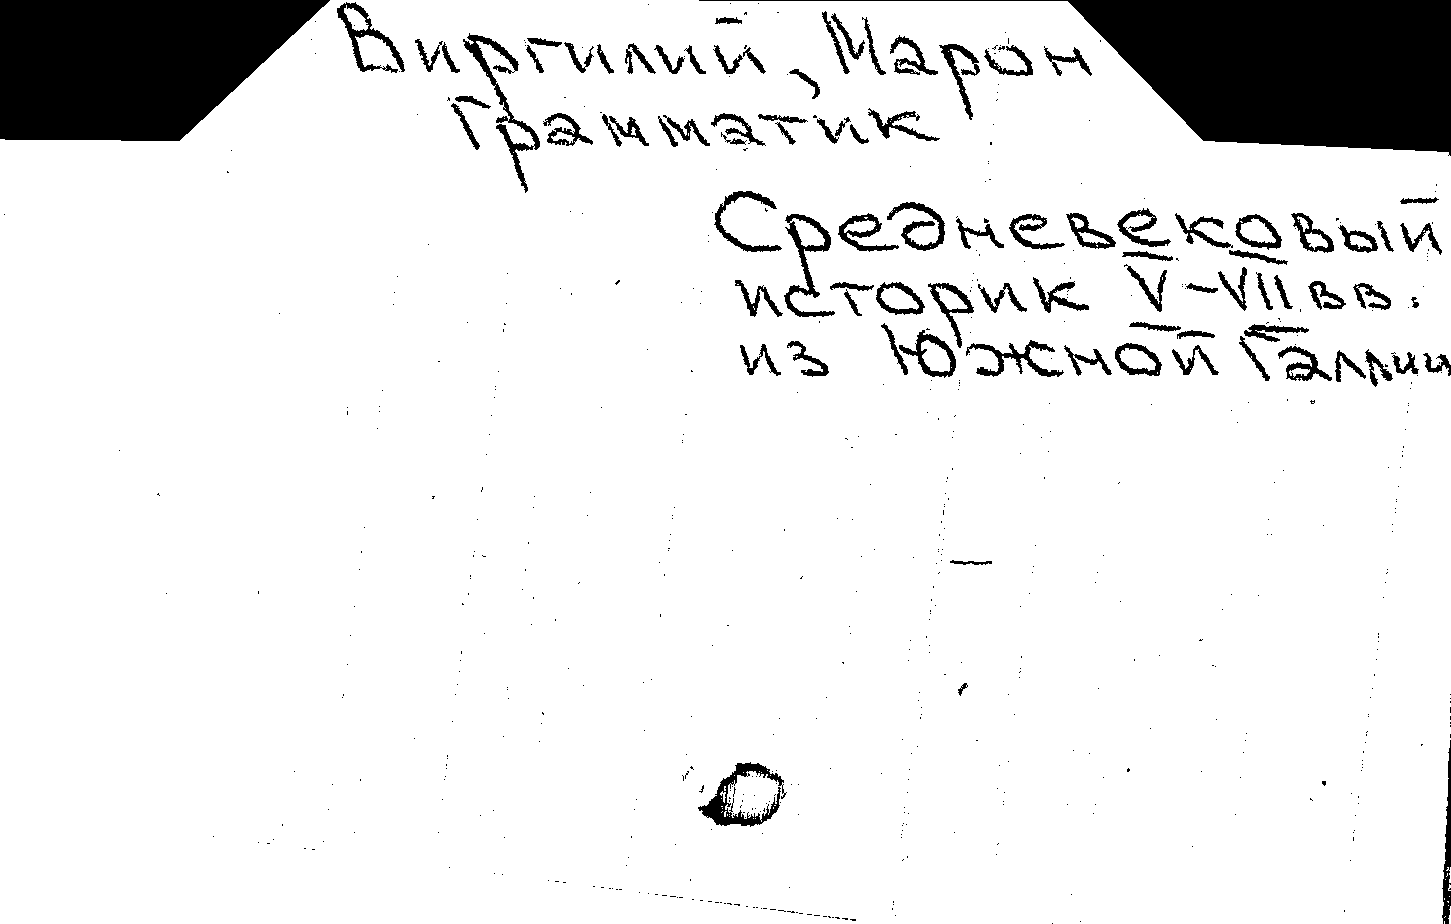 Виргилий, Марон
Грамматик
Средневековый
историк V-VII вв.
из Южной Галлии